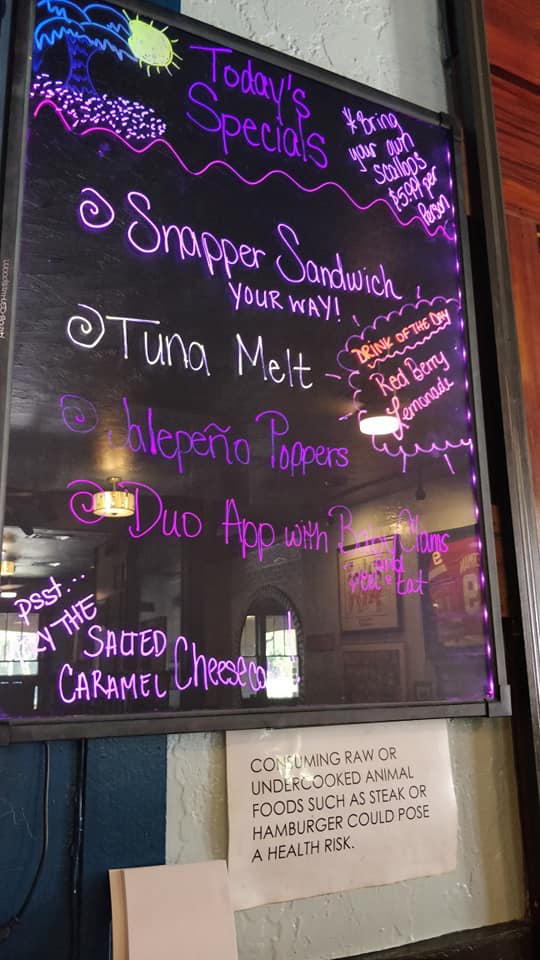 Today's
Specials
* Bring
your own
scallops
$5.99 per
Person
Snapper Sandwich
YOUR WAY!
Tuna Melt
DRINK OF THE DAY
Red Berry
Lemonade
Jalepeño Poppers
Duo App with Baby Clams
and
Peel & Eat
psst...
THE
SALTED
CARAMEL Cheese
CONSUMING RAW OR
UNDERCOOKED ANIMAL
FOODS SUCH AS STEAK OR
HAMBURGER COULD POSE
A HEALTH RISK.